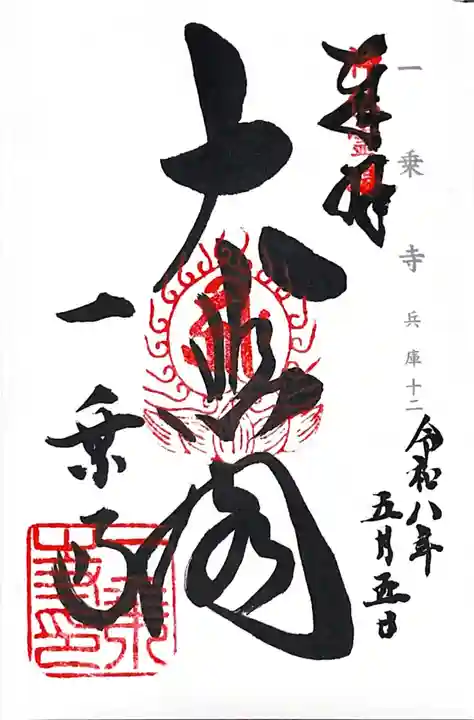 奉拝
一乗寺 兵庫十二
令和八年
五月五日
大悲閣
一乗寺